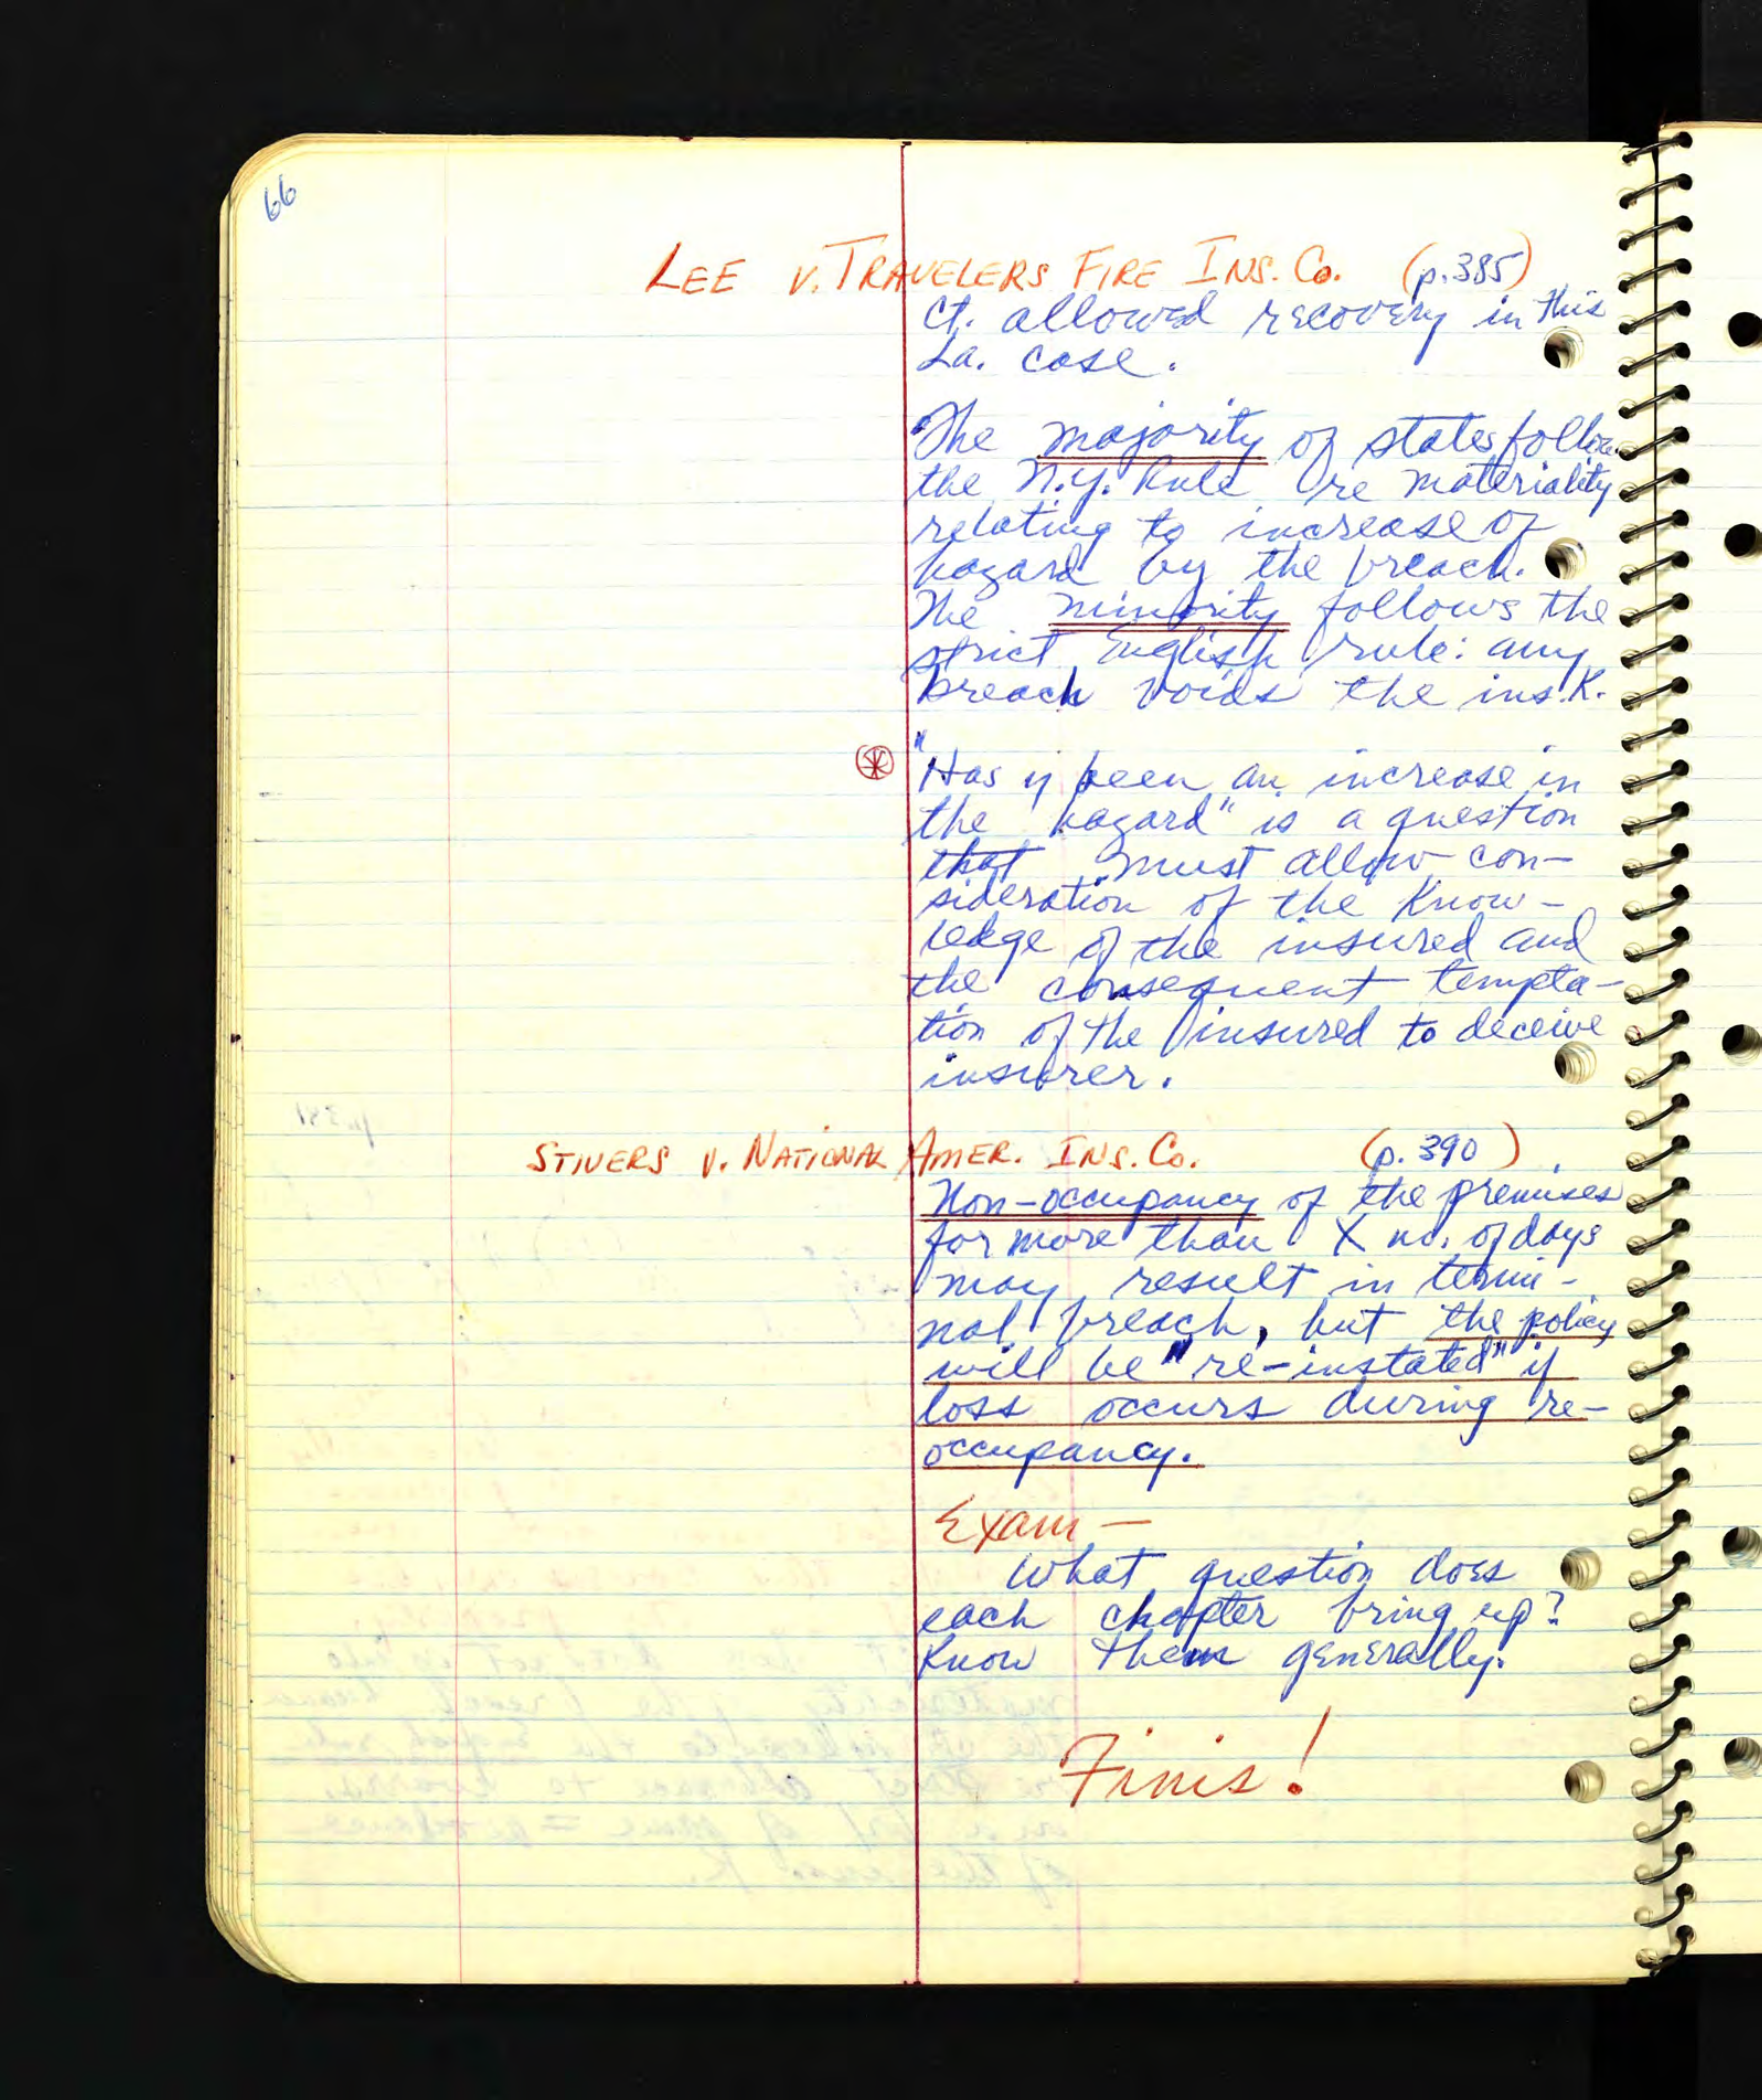 66
LEE v. TRAVELERS FIRE INS. Co. (p. 385)
Ct. allowed recovery in this
La. case.
The majority of states follow
the N.Y. Rule re materiality
relating to increase of
hazard by the breach.
The minority follows the
strict English rule: any
breach voids the ins. K.
"Has y been an increase in
the hazard" is a question
that must allow con-
sideration of the know-
ledge of the insured and
the consequent tempta-
tion of the insured to deceive
insurer.
STIVERS v. NATIONAL AMER. INS. Co. (p. 390)
Non-occupancy of the premises
for more than X no. of days
may result in termi-
nal breach, but the policy
will be "re-instated" if
loss occurs during re-
occupancy.
Exam —
What question does
each chapter bring up?
Know them generally.
Finis!